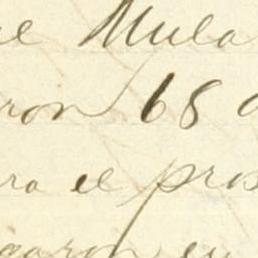 el Mula
ron 68 a
ra el pros
garon en